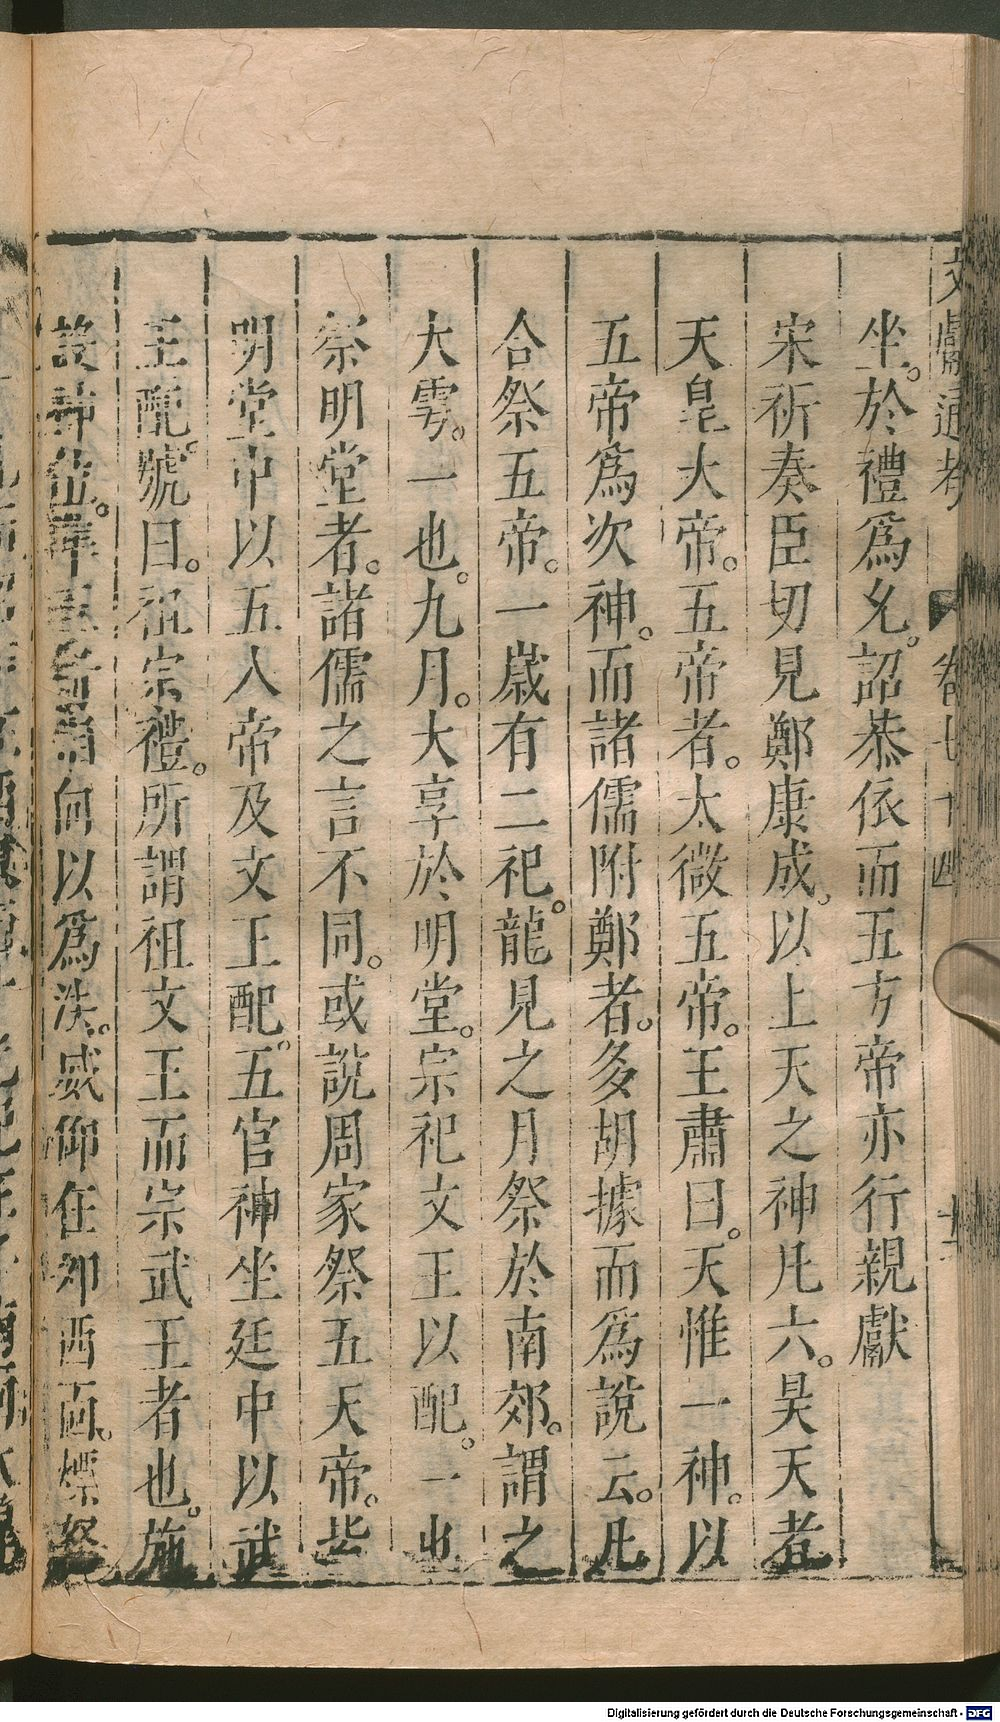 文獻通考 卷七十四
坐。於禮爲允。詔恭依而五方帝亦行親獻
宋祈奏臣切見鄭康成以上天之神凡六。昊天者
天皇大帝。五帝者。太微五帝。王肅曰。天惟一神。以
五帝爲次神。而諸儒附鄭者。多胡據而爲說云。凡
合祭五帝。一歲有二祀。龍見之月祭於南郊。謂之
大雩。一也。九月。大享於明堂。宗祀文王以配。一也
祭明堂者。諸儒之言不同。或說周家祭五天帝。皆
明堂中以五人帝及文王配。五官神坐廷中以武
王配。號曰。祖宗禮。所謂祖文王而宗武王者也。施
設神位。在何以爲決。或仰在卯西面。
Digitalisierung gefördert durch die Deutsche Forschungsgemeinschaft - DFG